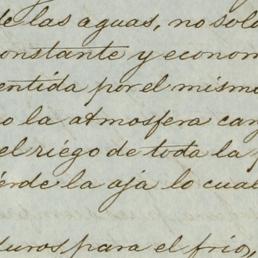 de las aguas, no solo
constante y econom
entida por el mism
o la atmosfera car
el riego de toda la p
erde la aja lo cual
uros para el frio,